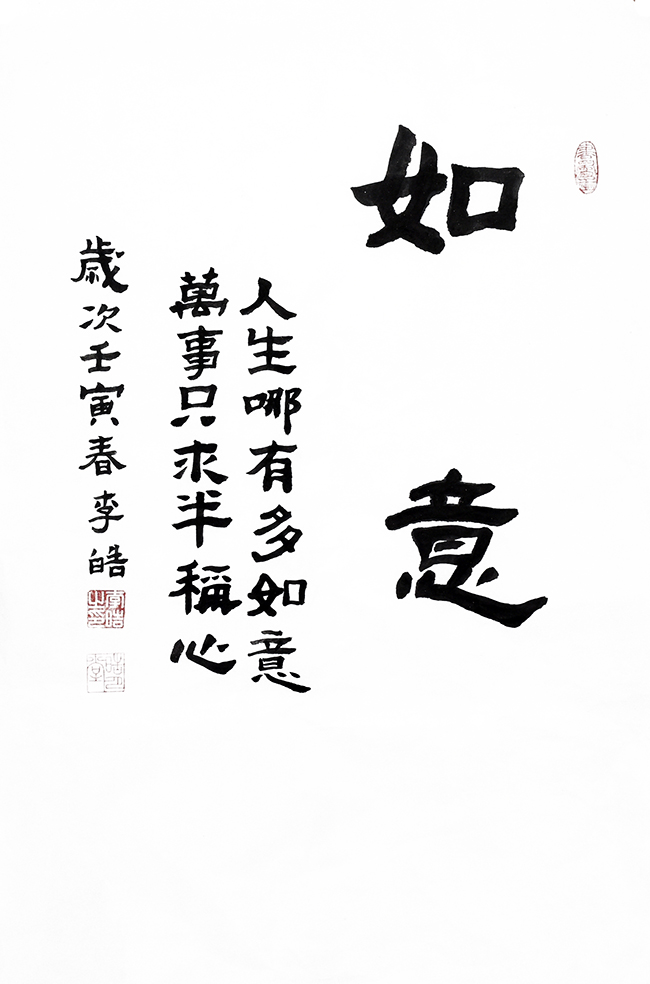 如意
人生哪有多如意
萬事只求半稱心
歲次壬寅春李皓